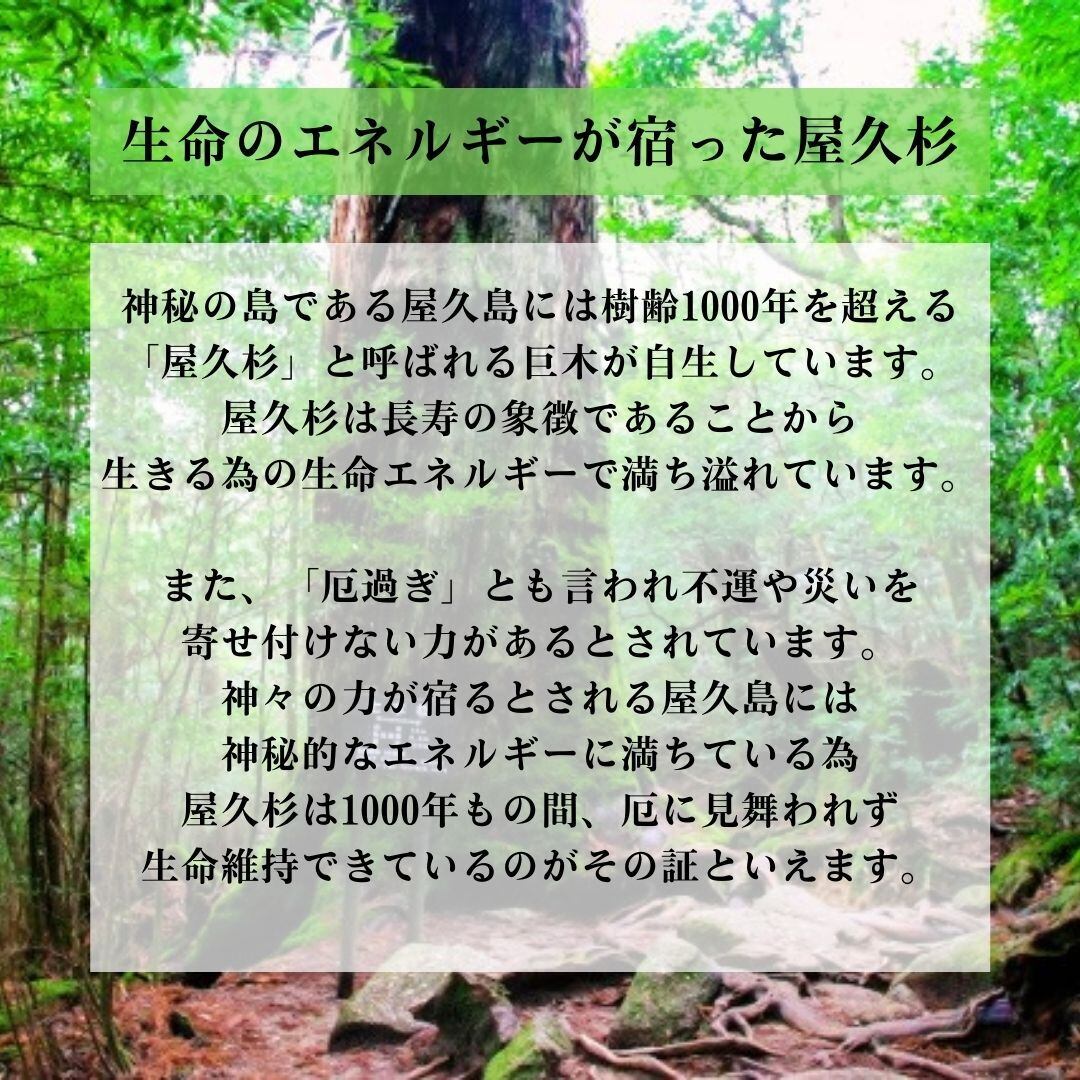 生命のエネルギーが宿った屋久杉
神秘の島である屋久島には樹齢1000年を超える
「屋久杉」と呼ばれる巨木が自生しています。
屋久杉は長寿の象徴であることから
生きる為の生命エネルギーで満ち溢れています。
また、「厄過ぎ」とも言われ不運や災いを
寄せ付けない力があるとされています。
神々の力が宿るとされる屋久島には
神秘的なエネルギーに満ちている為
屋久杉は1000年もの間、厄に見舞われず
生命維持できているのがその証といえます。